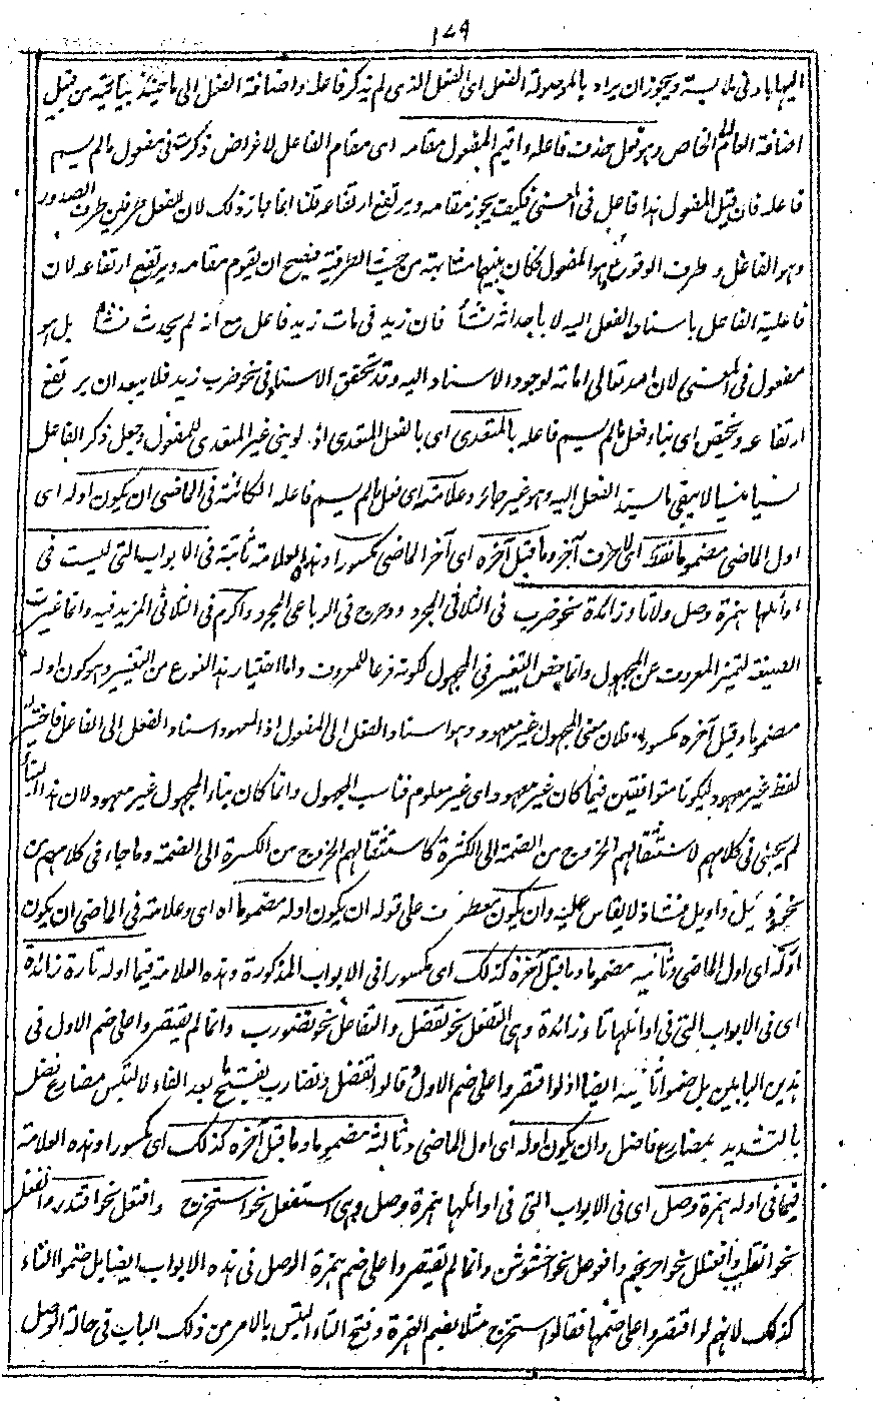 ١٧٩
اليها بادنى ملابسة ويجوز ان يراد بالموصولة الفعل اى الفعل الذى لم يذكر فاعله واضافة الفعل الى ما حينئذ بيانية من قبيل
اضافة العام الى الخاص وهو فعل حذف فاعله واقيم المفعول مقامه اى مقام الفاعل لاغراض ذكرت فى مفعول مالم يسم
فاعله فان قيل المفعول ضد الفاعل فى المعنى فكيف يجوز مقامه ويرتفع ارتفاعه قلنا انما جاز ذلك لان للفعل طرفين طرف الصدور
وهو الفاعل و طرف الوقوع وهو المفعول فكان بينهما مشابهة من حيث الطرفية فيصح ان يقوم مقامه ويرتفع ارتفاعه لان
فاعلية الفاعل باسناد الفعل اليه لا باحداثه شيأ فان زيد فى مات زيد فاعل مع انه لم يحدث شيأ بل هو
مفعول فى المعنى لان الله تعالى اماته لوجود الاسناد اليه وقد تحقق الاسناد فى نحو ضرب زيد فلا يبعد ان يرتفع
ارتفاعه ويختص اى بناء فعل مالم يسم فاعله بالمتعدى اى بالفعل المتعدى اذ لو بنى غير المتعدى للمفعول وجعل ذكر الفاعل
نسيا منسيا لا يبقى ما يسند الفعل اليه وهو غير جائز وعلامته اى فعل مالم يسم فاعله الكائنة فى الماضى ان يكون اوله اى
اول الماضى مضموما فقط اى لا حرف آخر وما قبل آخره اى آخر الماضى مكسورا وهذه العلامة ثابتة فى الابواب التى ليست فى
اوائلها همزة وصل ولا تا وزائدة نحو ضرب فى الثلاثى المجرد ودحرج فى الرباعى المجرد واكرم فى الثلاثى المزيد فيه وانما غيرت
الصيغة لتميز المعروف عن المجهول وانما خص التغيير فى المجهول لكونه فرعا للمعروف واما اختيار هذا النوع من التغيير وهو كون اوله
مضموما وقبل آخره مكسورا فلان معنى المجهول غير معهود وهو اسناد الفعل الى المفعول اذ المعهود اسناد الفعل الى الفاعل فاختير
لفظ غير معهود ليكونا متوافقين فيما كان غير معهود اى غير معلوم فناسب المجهول وانما كان بناء المجهول غير معهود لان هذا البناء
لم يجئ فى كلامهم لاستثقالهم الخروج من الضمة الى الكسرة كاستثقالهم الخروج من الكسرة الى الضمة وما جاء فى كلامهم من
نحو دئل واويل فشاذ لا يقاس عليه وان يكون معطوف على قوله ان يكون اوله مضموما اه اى وعلامته فى الماضى ان يكون
اوله اى اول الماضى وثانيه مضموما وما قبل آخره كذلك اى مكسورا فى الابواب المذكورة وهذه العلامة فيما اوله تاء زائدة
اى فى الابواب التى فى اوائلها تا وزائدة وهى التفعل نحو تفضل والتفاعل نحو تضورب وانما لم يقتصروا على ضم الاول فى
هذين البابين بل ضموا ثانيه ايضا اذ لو اقتصروا على ضم الاول وقالوا تفضل وتضارب بفتح ما بعد الفاء لالتبس مضارع فضل
بالتشديد بمضارع فاضل وان يكون اوله اى اول الماضى وثالثه مضموما وما قبل آخره كذلك اى مكسورا وهذه العلامة
فيما فى اوله همزة وصل اى فى الابواب التى فى اوائلها همزة وصل وهى استفعل نحو استخرج وافتعل نحو اقتدر وانفعل
نحو انقلب وافعنلل نحو احرنجم وافعوعل نحو اخشوشن وانما لم يقتصروا على ضم همزة الوصل فى هذه الابواب ايضا بل ضموا الثالث
كذلك لانهم لو اقتصروا على ضمها فقالوا استخرج مثلا بضم الهمزة وفتح التاء التبس بالامر من ذلك الباب فى حالة الوصل